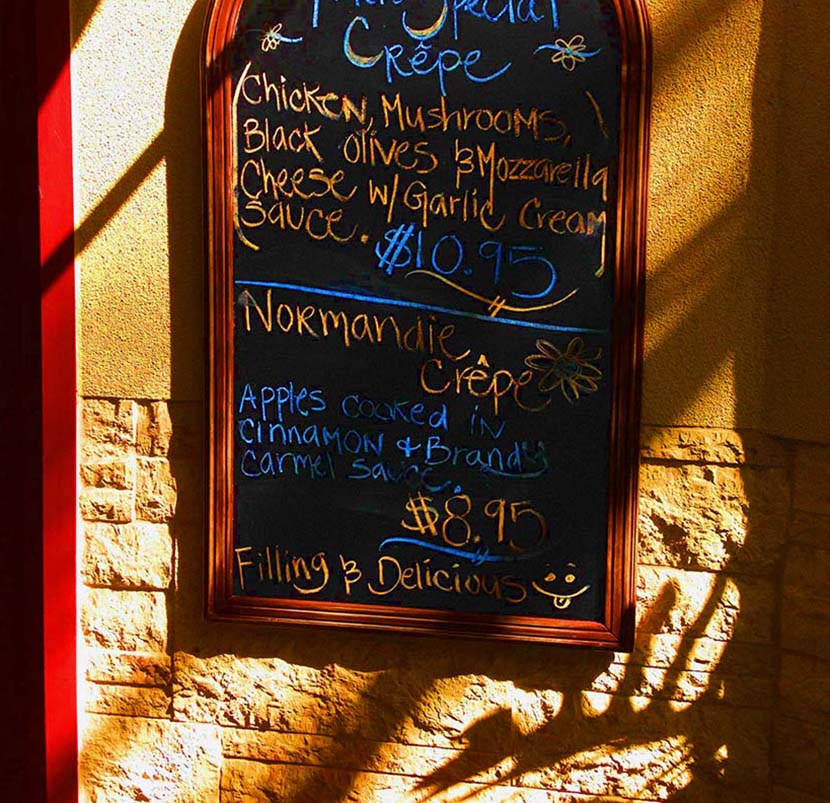 Special
Crêpe
Chicken, Mushrooms,
Black olives & Mozzarella
Cheese w/ Garlic Cream
Sauce.
$10.95
Normandie
Crêpe
Apples cooked in
cinnamon & Brandy
carmel sauce.
$8.95
Filling & Delicious